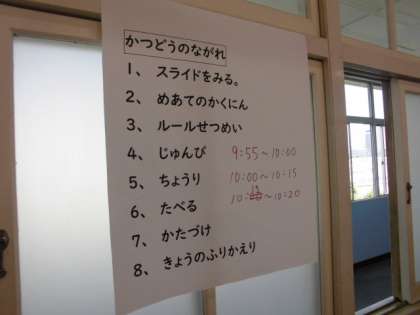 かつどうのながれ
1、 スライドをみる。
2、 めあてのかくにん
3、 ルールせつめい
4、 じゅんび 9:55～10:00
5、 ちょうり 10:00～10:15
6、 たべる 10:15～10:20
7、 かたづけ
8、 きょうのふりかえり